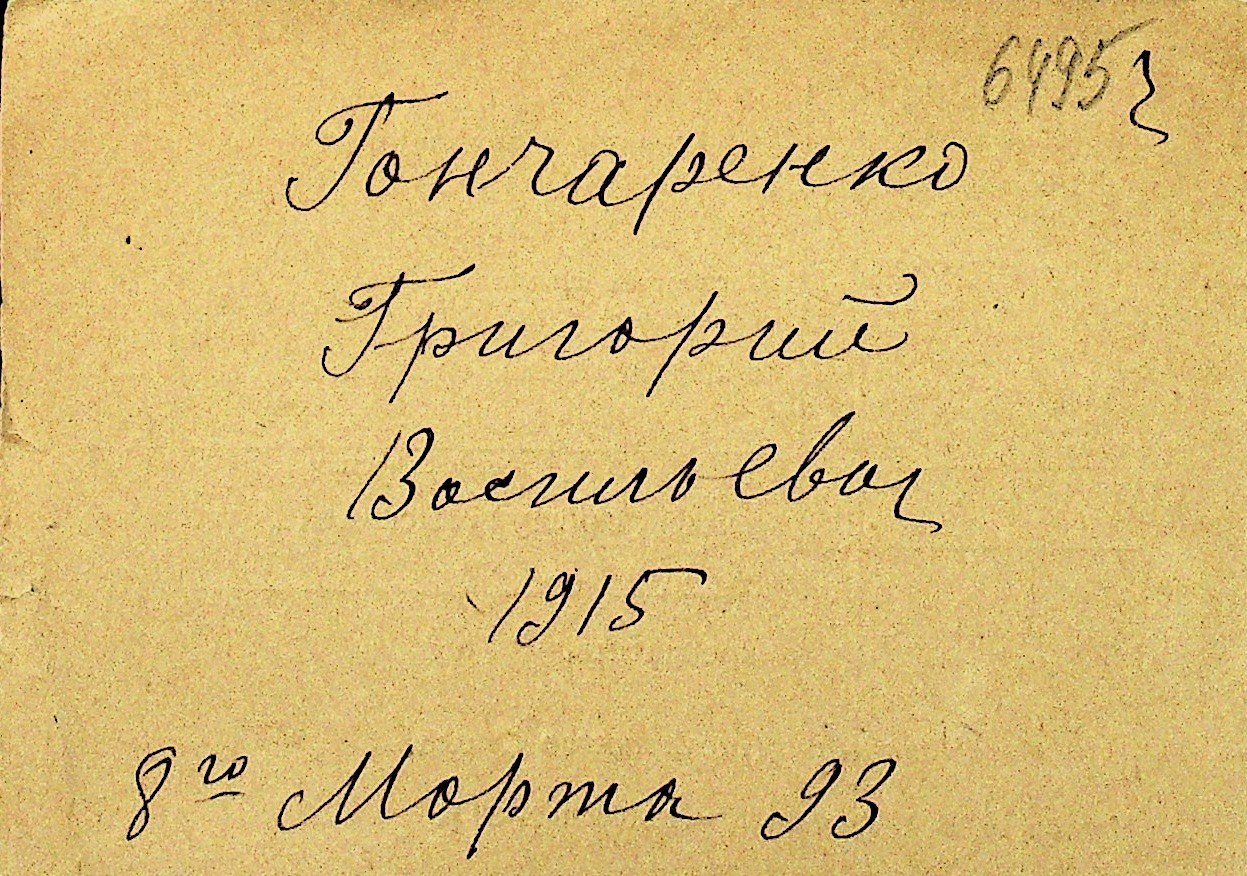 6495 г
Гончаренко
Григорий
Васильевич
1915
8го Марта 93